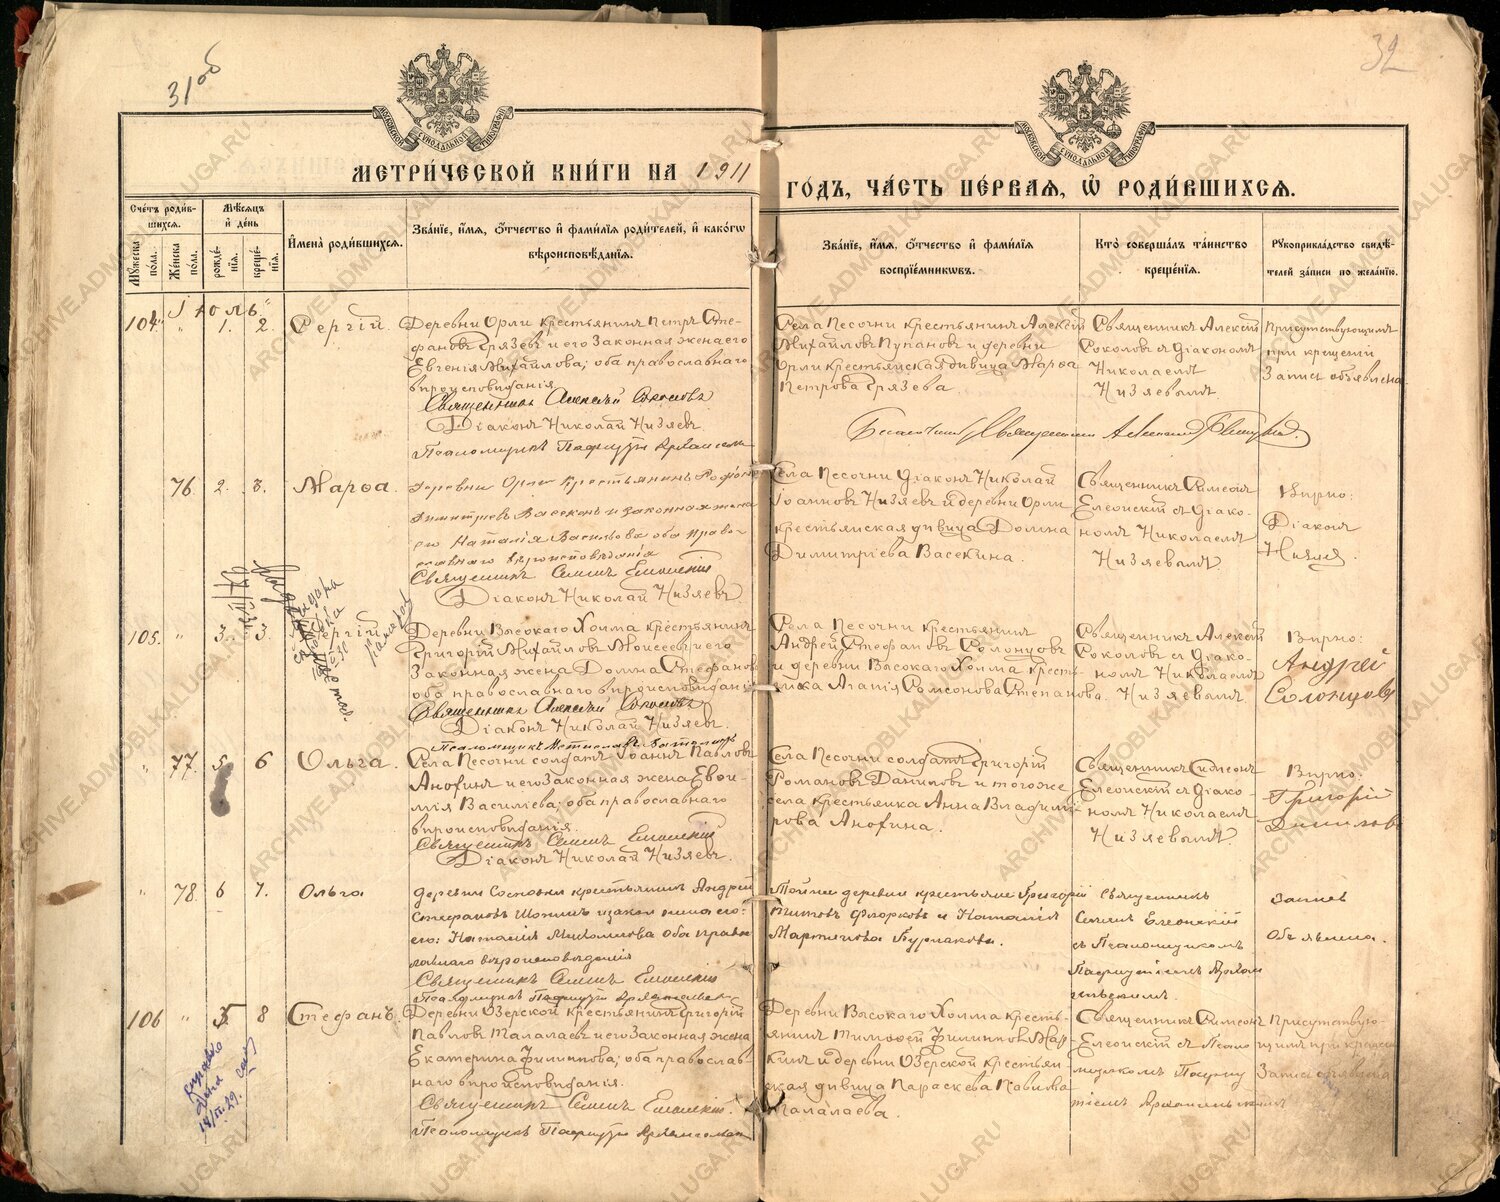 31об
32
МЕТРИ́ЧЕСКОЙ КНИ́ГИ НА 1911
ГО́ДЪ, ЧА́СТЬ ПЕ́РВАЯ, Ѡ РОДИ́ВШИХСЯ.
Сче́тъ роди́вшихся.
Мѣ́сяцъ и҆ де́нь
Мꙋ́жеска пола.
Же́нска пола.
рожде́нїя.
креще́нїя.
И҆мена̀ роди́вшихся.
Зва́нїе, и҆́мя, ѻ҆́тчество и҆ фами́лїя роди́телей, и҆ како́гѡ вѣроисповѣ́данїя.
Зва́нїе, и҆́мя, ѻ҆́тчество и҆ фами́лїя воспрїе́мникѡвъ.
Кто̀ соверша́лъ та́инство креще́нїя.
Рꙋкоприкла́дство свидѣ́телей за́писи по жела́нїю.
Iюль
104. " 1. 2. Сергій.
Деревни Орли крестьянинъ Петръ Сте-
фановъ Грязевъ и его законная жена его
Евгенія Михайлова; оба православнаго
вѣроисповѣданія
Священникъ Алексѣй Соколовъ
Діаконъ Николай Низяевъ
Псаломщикъ Пафнутій Архангельск
Села Песочни крестьянинъ Алексѣй
Михайловъ Купановъ и деревни
Орли крестьянская дѣвица Марѳа
Петрова Грязева
Священникъ Алексѣй
Соколовъ съ діакономъ
Николаемъ
Низяевымъ
Присутствующимъ
при крещеніи
Запись объявлена
76. 2. 3. Марѳа.
Деревни Орли крестьянинъ
Димитріевъ Васекинъ и законная жена
его Наталія Васильева оба право-
славнаго вѣроисповѣданія
Священникъ Симеонъ Елеонскій
Діаконъ Николай Низяевъ.
Села Песочни Діаконъ Николай
Іоанновъ Низяевъ и деревни Орли
крестьянская дѣвица Домна
Димитріева Васекина.
Священникъ Симеонъ
Елеонскій съ діако-
номъ Николаемъ
Низяевымъ.
Вѣрно:
Діаконъ
Низяевъ.
105. " 3. 3. Сергій
Деревни Высокаго Холма крестьянинъ
Григорій Михайловъ Моисеевъ и его
законная жена Домна Стефанова
оба православнаго вѣроисповѣданія
Священникъ Алексѣй Соколовъ
Діаконъ Николай Низяевъ.
Псаломщикъ
Села Песочни крестьянинъ
Андрей Стефановъ Солонцовъ
и деревни Высокаго Холма кресть-
янка Агапія Самсонова Степанова.
Священникъ Алексѣй
Соколовъ съ діако-
номъ Николаемъ
Низяевымъ
Вѣрно:
Андрей
Солонцовъ
" 77. 5 6 Ольга.
Села Песочни солдатъ Іоаннъ Павловъ
Анохинъ и его законная жена Евѳи-
мія Василіева; оба православнаго
вѣроисповѣданія.
Священникъ Симеонъ Елеонскій
Діаконъ Николай Низяевъ.
Села Песочни солдатъ Григорій
Романовъ Даниловъ и тогоже
села крестьянка Анна Владимі-
рова Анохина.
Священникъ Симеонъ
Елеонскій съ діако-
номъ Николаемъ
Низяевымъ.
Вѣрно:
Григорій
Даниловъ
" 78. 6 7. Ольга
деревни Сосновки крестьянинъ Андрей
Стефановъ
его: Наталія оба право-
славнаго вѣроисповѣданія
Священникъ Симеонъ Елеонскій
Псаломщикъ Пафнутій Архангельск
Тойже деревни крестьяне Григорій
Титовъ Флорковъ и Наталія
Мартинова Бурмакова.
Священникъ
Симеонъ Елеонскій
съ Псаломщикомъ
Пафнутіемъ Архан
гельскимъ.
Запись
Объявлена.
106 " 5 8 Стефанъ.
Деревни Озерской крестьянинъ Григорій
Павловъ Талалаевъ и его законная жена
Екатерина Филиппова; оба православ-
наго вѣроисповѣданія.
Священникъ Симеонъ Елеонскій.
Псаломщикъ Пафнутій Архангельск
Деревни Высокаго Холма кресть-
янинъ Тимоѳей Филипповъ Жар
кинъ и деревни Озерской крестьян
ская дѣвица Параскева Павлова
Талалаева.
Священникъ Симеонъ
Елеонскій съ Псало
мщикомъ Пафну
тіемъ Архангельскимъ
Присутствую-
щимъ при крещен
Запись объявлена
ARCHIVE.ADMOBLKALUGA.RU